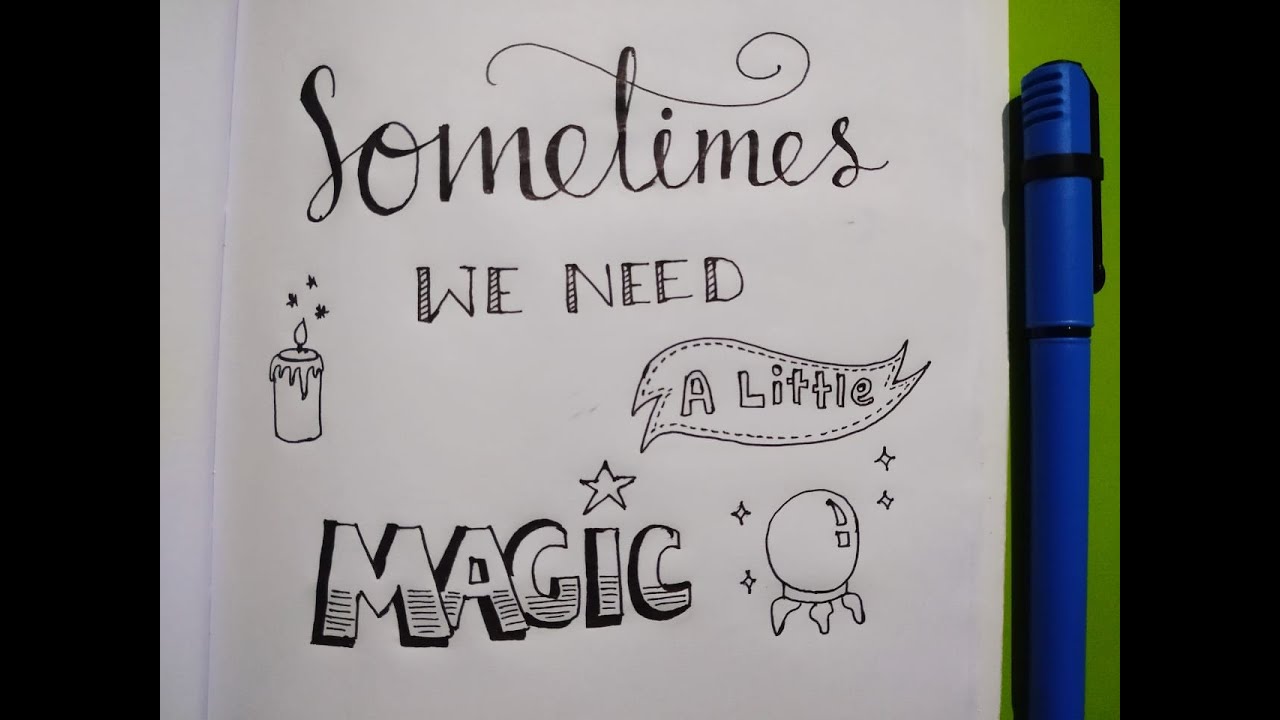 Sometimes
WE NEED
A Little
MAGIC